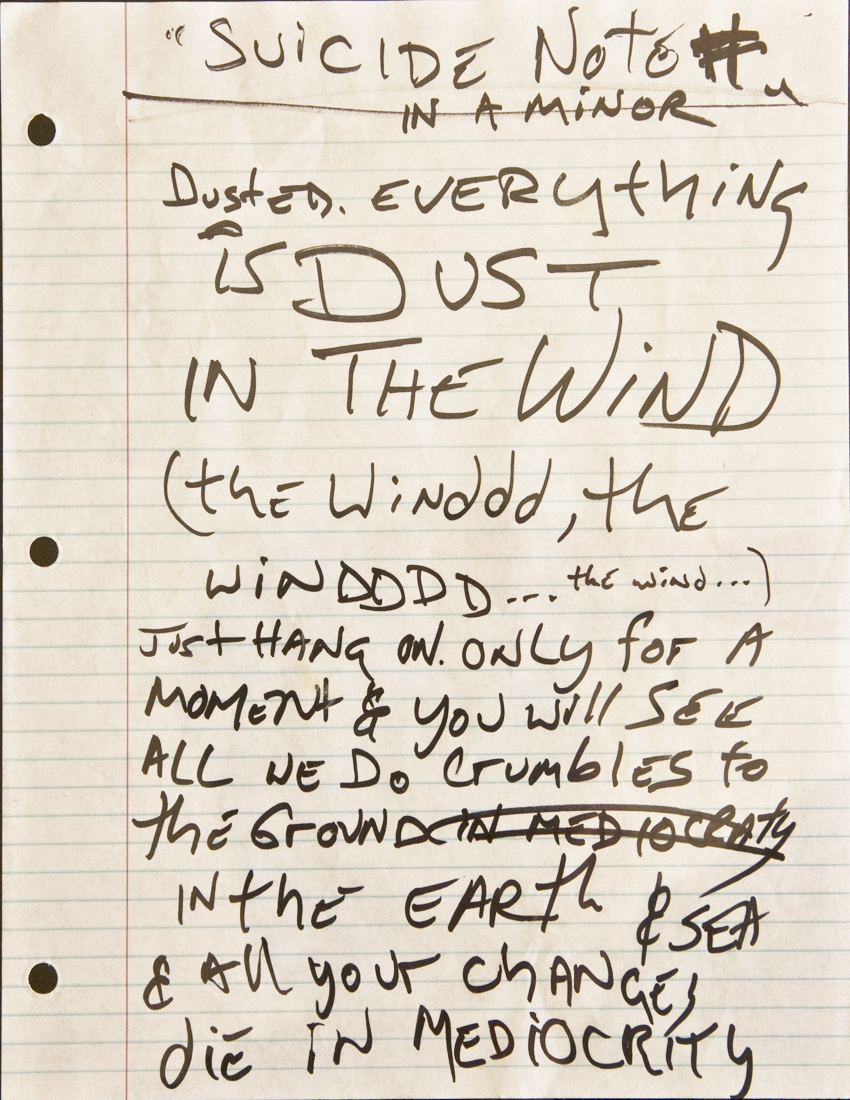 "SUiCIDE NoTe #"
IN A MiNOR
DustED. EVERythiNg
is DUST
IN THE WiND
(thE WiNddd, thE
WiNDDDD... the wind...)
JUst HANg ON. ONLy foR A
MOMENt & you will SEE
ALL WE Do CrumblES to
thE GrOUND IN MEDIOCRATy
IN thE EARth & SEA
& All your ChANgES
diE IN MEDiOCRiTy